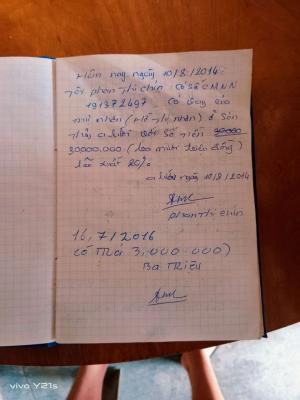 Hôm nay ngày 10/8/2014
Tôi phan thị chín có số CMNN
191372497 có
mự nhân (Hồ Thị nhân) ở Sơn
Thủy a lưới với số tiền 30000
30000.000 (ba mươi triệu đồng)
lãi xuất 20%
a lưới ngày 10/8/2014
phan Thị chín
16, 7/2016
Có Trả 3,000.000)
Ba Triệu
vivo Y21s